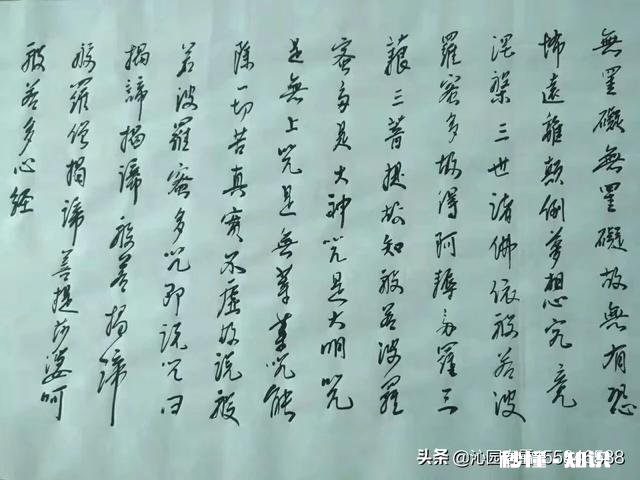 無罣礙無罣礙故無有恐
怖遠離顛倒夢想究竟
涅槃三世諸佛依般若波
羅蜜多故得阿耨多羅三
藐三菩提故知般若波羅
蜜多是大神咒是大明咒
是無上咒是無等等咒能
除一切苦真實不虛故説般
若波羅蜜多咒即説咒曰
揭諦揭諦般若揭諦
般羅僧揭諦菩提莎婆呵
般若多心经
头条 @沁园